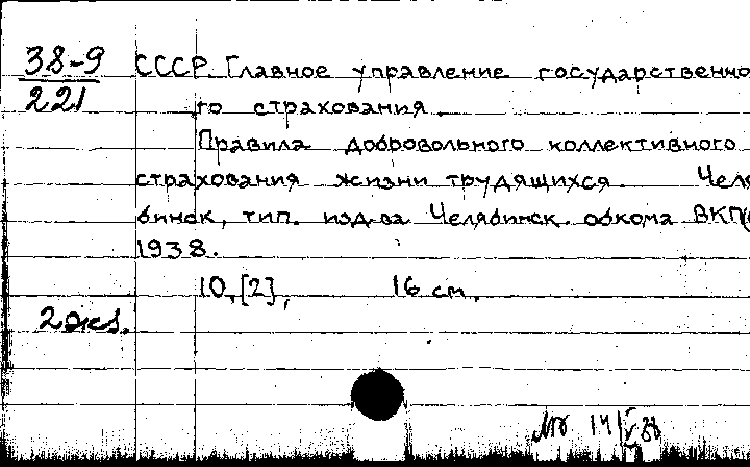 38-9
221
СССР. Главное управление государственно
го страхования.
Правила добровольного коллективного
страхования жизни трудящихся. Челя
бинск, тип. изд-ва Челябинск. обкома ВКП(
1938.
10,[2], 16 см.
2 экз.
14/V-38